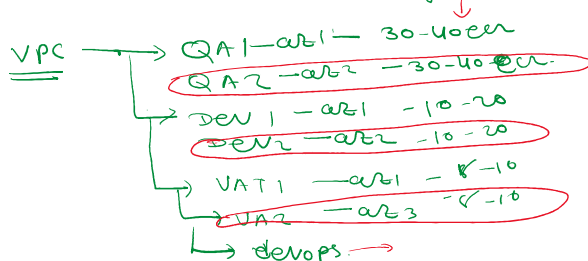 VPC → QA1 - az1 - 30-40ecr
QA2 - az2 - 30-40 ecr.
DEV 1 - az1 - 10-20
DEV2 - az2 - 10-20
VAT1 - az1 - 8-10
VA2 - az3 - 8-10
→ devops →